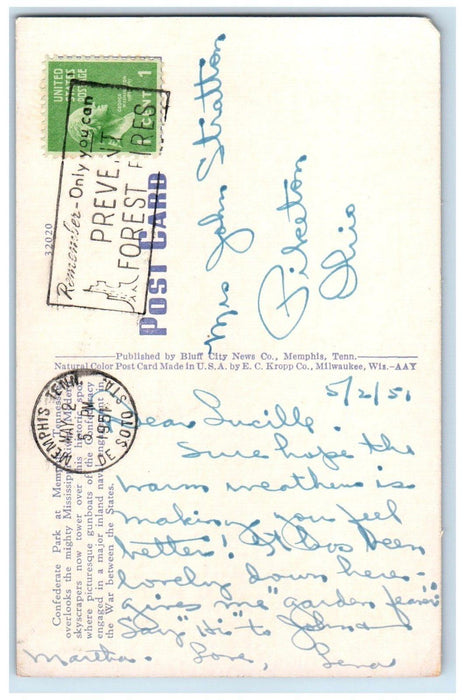 UNITED
STATES
POSTAGE
1
CENT
Remember-Only you can
PREVENT
FOREST FIRES
32020
POST CARD
Mrs John Stratton
Piketon
Ohio
Published by Bluff City News Co., Memphis, Tenn.
Natural Color Post Card Made in U.S.A. by E. C. Kropp Co., Milwaukee, Wis.-AAY
MEMPHIS TENN.
MAY 2
5 PM
1951
DE SOTO STA.
Confederate Park at Memphis, Tennessee,
overlooks the mighty Mississippi. Modern
skyscrapers now tower over this historic spot
where picturesque gunboats of the Confederacy
engaged in a major inland naval engagement in
the War between the States.
5/2/51
Dear Lucille:
Sure hope the
warm weather is
making you feel
better! It has been
lovely down here-
gives me "garden fever".
Say "Hi" to John
Love,
Martha